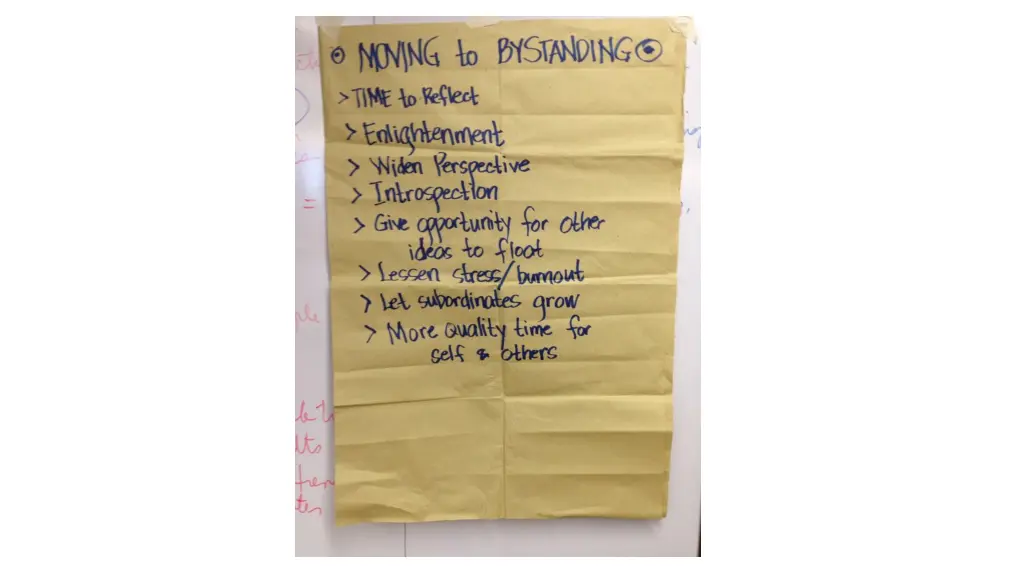 MOVING to BYSTANDING
> TIME to Reflect
> Enlightenment
> Widen Perspective
> Introspection
> Give opportunity for other
ideas to float
> Lessen stress/burnout
> Let subordinates grow
> More Quality time for
self & others